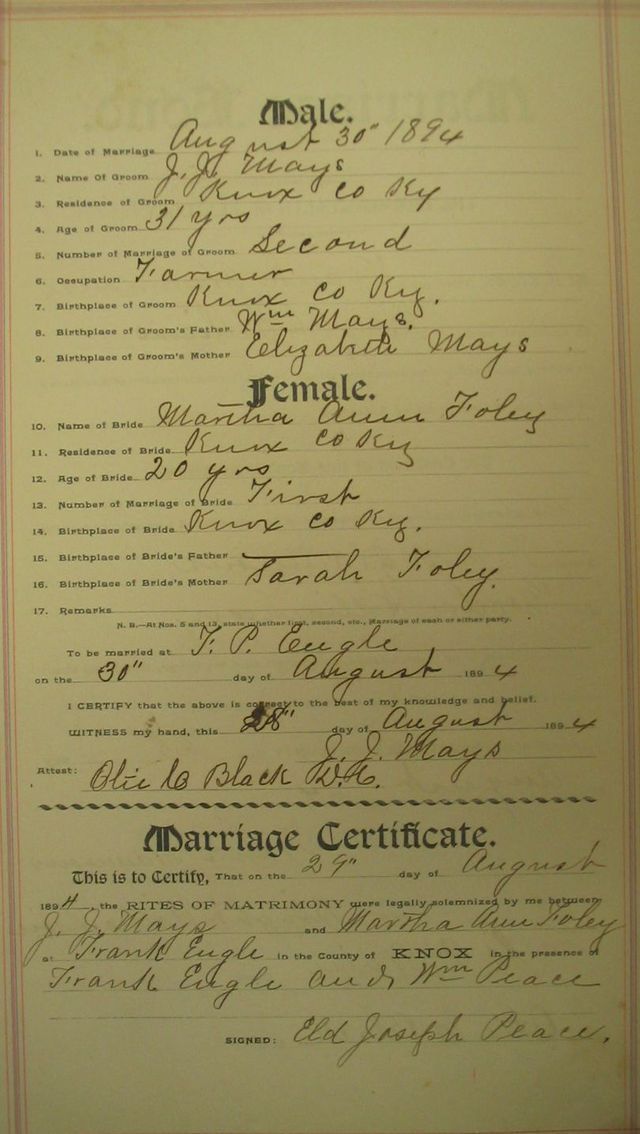 Male.
1. Date of Marriage August 30" 1894
2. Name Of Groom J. J. Mays
3. Residence of Groom Knox Co Ky
4. Age of Groom 31 yrs
5. Number of Marriage of Groom Second
6. Occupation Farmer
7. Birthplace of Groom Knox Co Ky.
8. Birthplace of Groom's Father Wm Mays.
9. Birthplace of Groom's Mother Elizabeth Mays
Female.
10. Name of Bride Martha Ann Foley
11. Residence of Bride Knox Co Ky
12. Age of Bride 20 yrs
13. Number of Marriage of Bride First
14. Birthplace of Bride Knox Co Ky.
15. Birthplace of Bride's Father
16. Birthplace of Bride's Mother Sarah Foley.
17. Remarks
N. B.—At Nos. 5 and 13, state whether first, second, etc., Marriage of each or either party.
To be married at F. P. Engle
on the 30" day of August 1894
I CERTIFY that the above is correct to the best of my knowledge and belief.
WITNESS my hand, this 28" day of August 1894
J. J. Mays
Attest: Black D.C.
Marriage Certificate.
This is to Certify, That on the 29" day of August
1894, the RITES OF MATRIMONY were legally solemnized by me between
J. J. Mays and Martha Ann Foley
at Frank Engle in the County of KNOX in the presence of
Frank Engle and Wm Peace
SIGNED: Eld Joseph Peace.